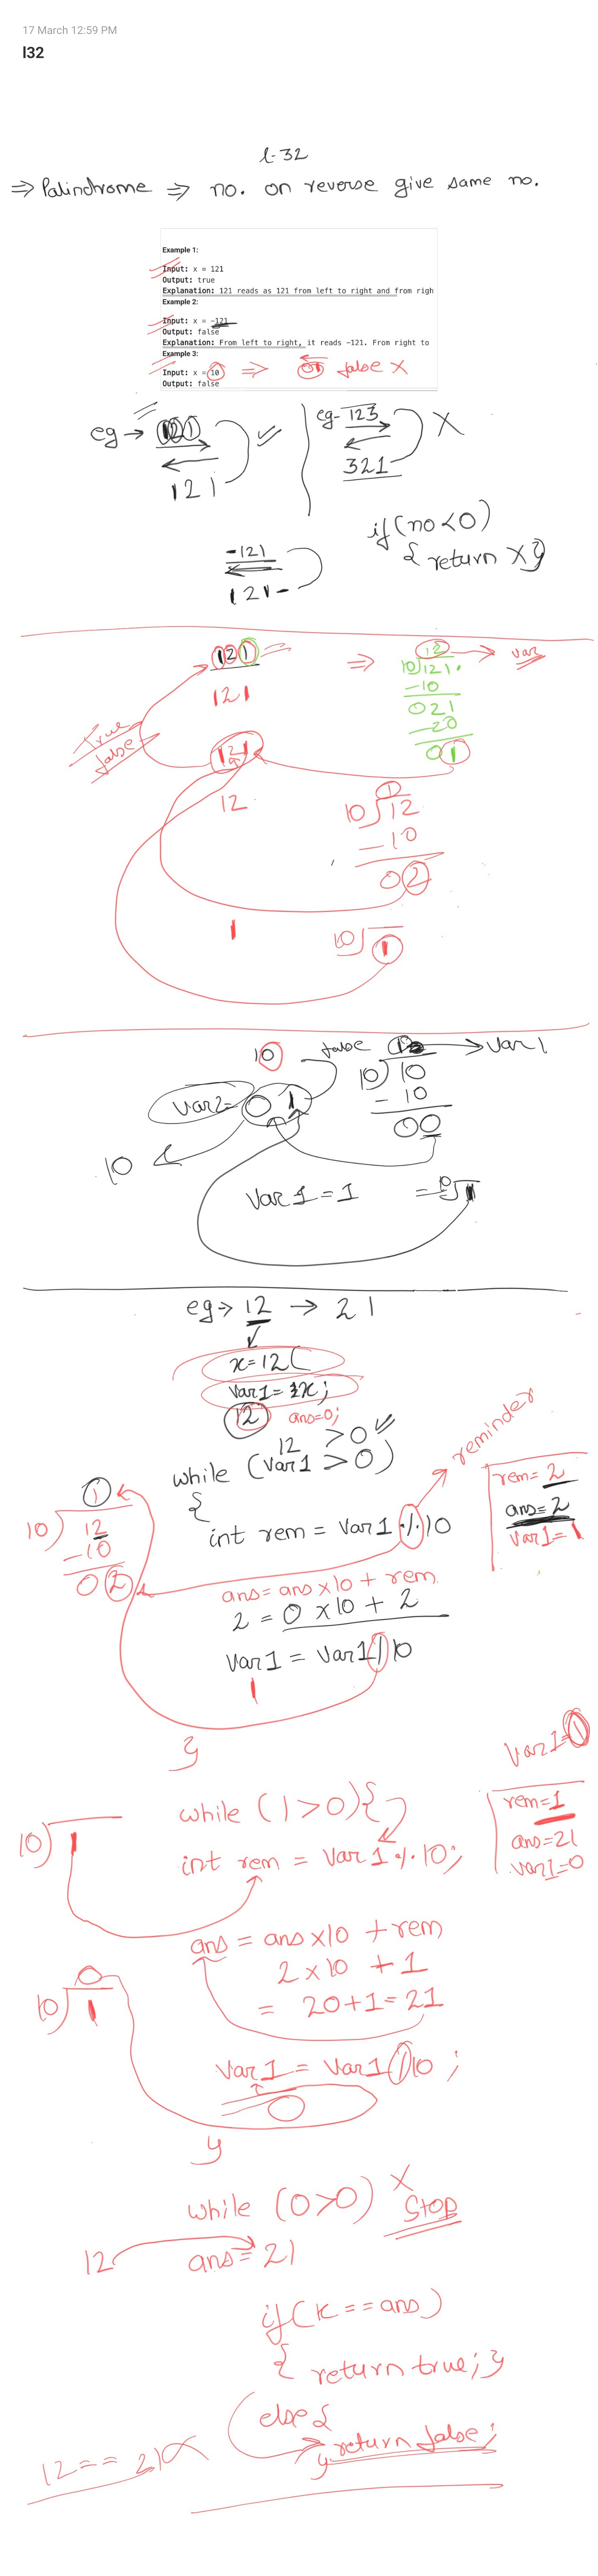 17 March 12:59 PM
l32
l-32
⇒ Palindrome ⇒ no. on reverse give same no.
Example 1:
Input: x = 121
Output: true
Explanation: 121 reads as 121 from left to right and from righ
Example 2:
Input: x = -121
Output: false
Explanation: From left to right, it reads -121. From right to
Example 3:
Input: x = 10 ⇒ 01 false X
Output: false
eg → 121 ✓
121
eg- 123 X
321
if (no < 0)
{ return X }
-121
121-
121 ⇒ 12 → var
10)121
-10
021
-20
01
121
True
false
121
12
1
10)12
-10
02
1
10)1
10 false 1 → Var1
10)10
-10
00
Var2= 0 1
10
Var1 = 1 = 10)1
eg → 12 → 21
x=12
Var1= x;
12 ans=0;
12 > 0 ✓
while (Var1 > 0)
{
int rem = Var1 % 10
reminder
rem= 2
ans= 2
Var1= 1
1
10)12
-10
02
ans= ans x10 + rem
2 = 0 x10 + 2
Var1 = Var1 / 10
1
}
Var1=1
while (1>0){
int rem = Var1 % 10;
10)1
rem=1
ans=21
Var1=0
ans = ans x10 + rem
2 x10 + 1
= 20+1=21
0
10)1
Var1 = Var1 / 10;
0
}
while (0>0) X
Stop
12 ans= 21
if (x == ans)
{ return true; }
else {
return false;
}
12 == 21 X